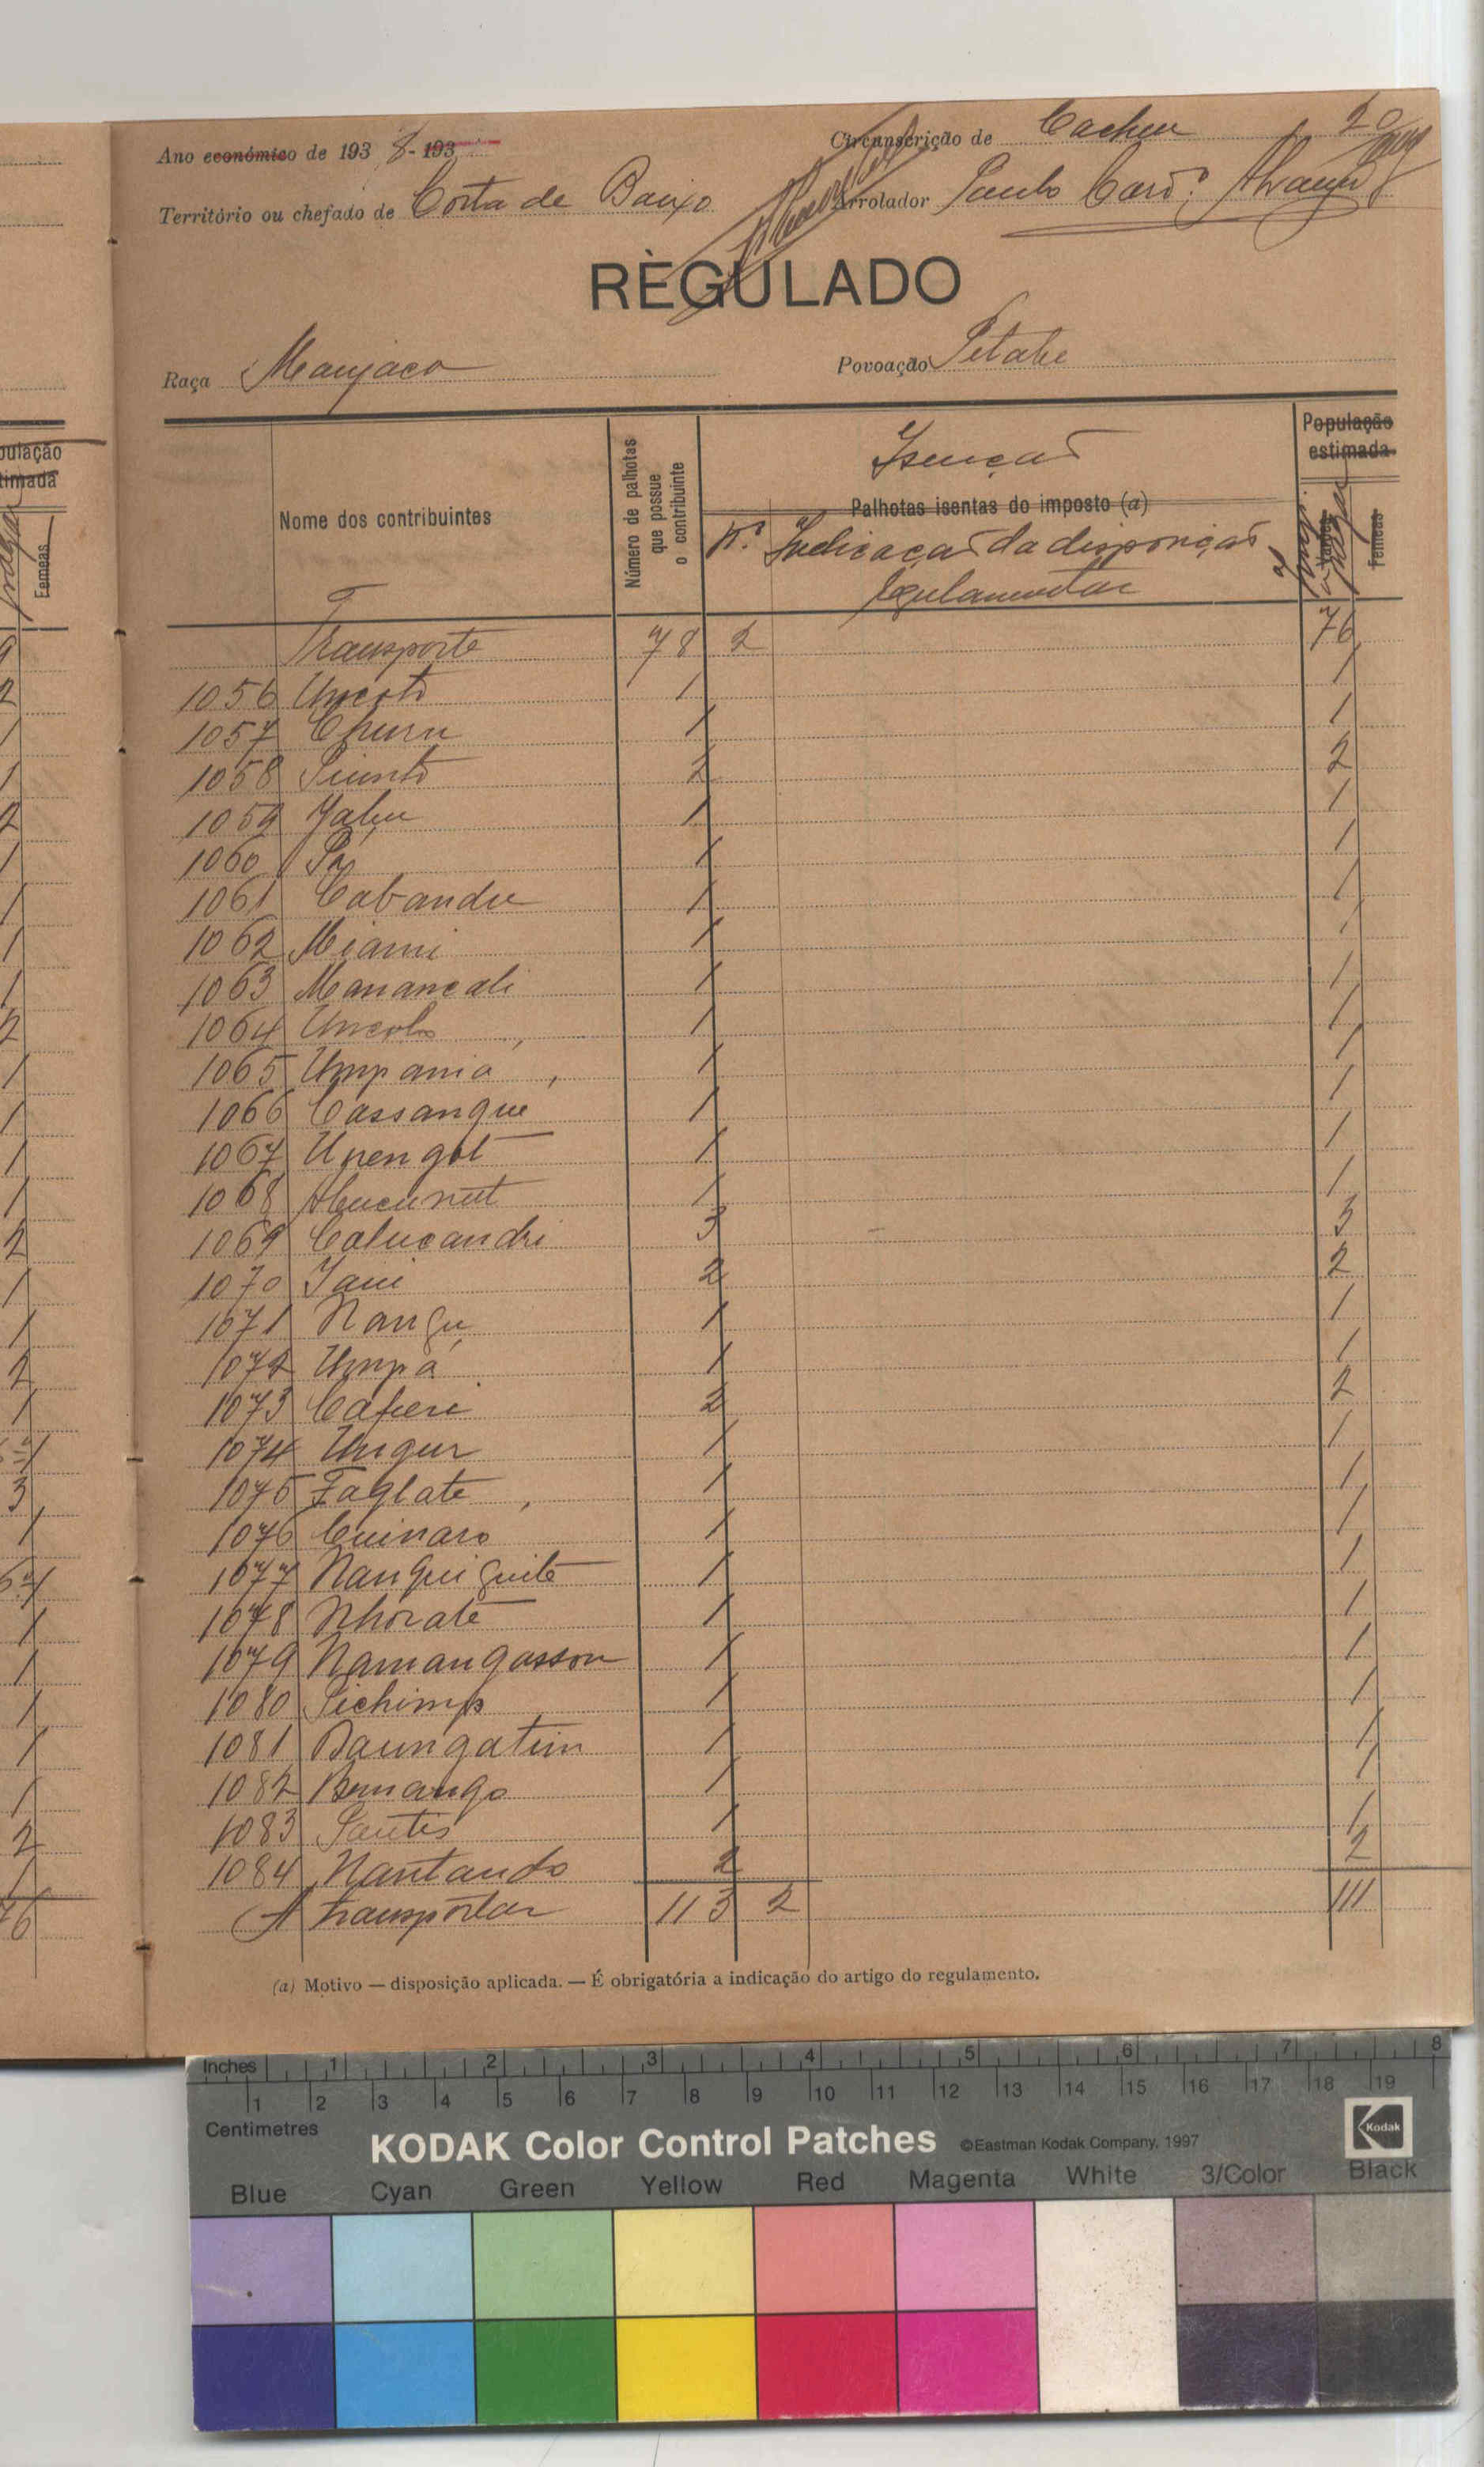 Ano económico de 1938-193
Circunscrição de Cacheu 20
Território ou chefado de Costa de Baixo
Arrolador Paulo Card.º
RÈGULADO
Raça Manjaco
Povoação Petabe
Nome dos contribuintes
Número de palhotas que possue o contribuinte
Isenção
Palhotas isentas do imposto (a)
N.º Indicação da disposição
regulamentar
População estimada
a pagar
Femeas
Transporte 78 2 76
1056 1 1
1057 Churu 1 1
1058 2 2
1059 1 1
1060 1 1
1061 Cabandu 1 1
1062 Miami 1 1
1063 Manancali 1 1
1064 Uncolo 1 1
1065 Umpania 1 1
1066 Cassangue 1 1
1067 Upengot 1 1
1068 1 1
1069 Calucandri 3 3
1070 2 2
1071 Nangu 1 1
1072 Umpá 1 1
1073 Caferi 2 2
1074 Ungur 1 1
1075 Faglate 1 1
1076 Cuinaro 1 1
1077 Nanquiguite 1 1
1078 Nhorate 1 1
1079 Namangasson 1 1
1080 Pichimp 1 1
1081 Baungatim 1 1
1082 Bemango 1 1
1083 1 1
1084 Nantando 2 2
A transportar 113 2 111
(a) Motivo — disposição aplicada. — É obrigatória a indicação do artigo do regulamento.
Inches 1 2 3 4 5 6 7 8
1 2 3 4 5 6 7 8 9 10 11 12 13 14 15 16 17 18 19
Centimetres
KODAK Color Control Patches ©Eastman Kodak Company, 1997 Kodak
Blue Cyan Green Yellow Red Magenta White 3/Color Black